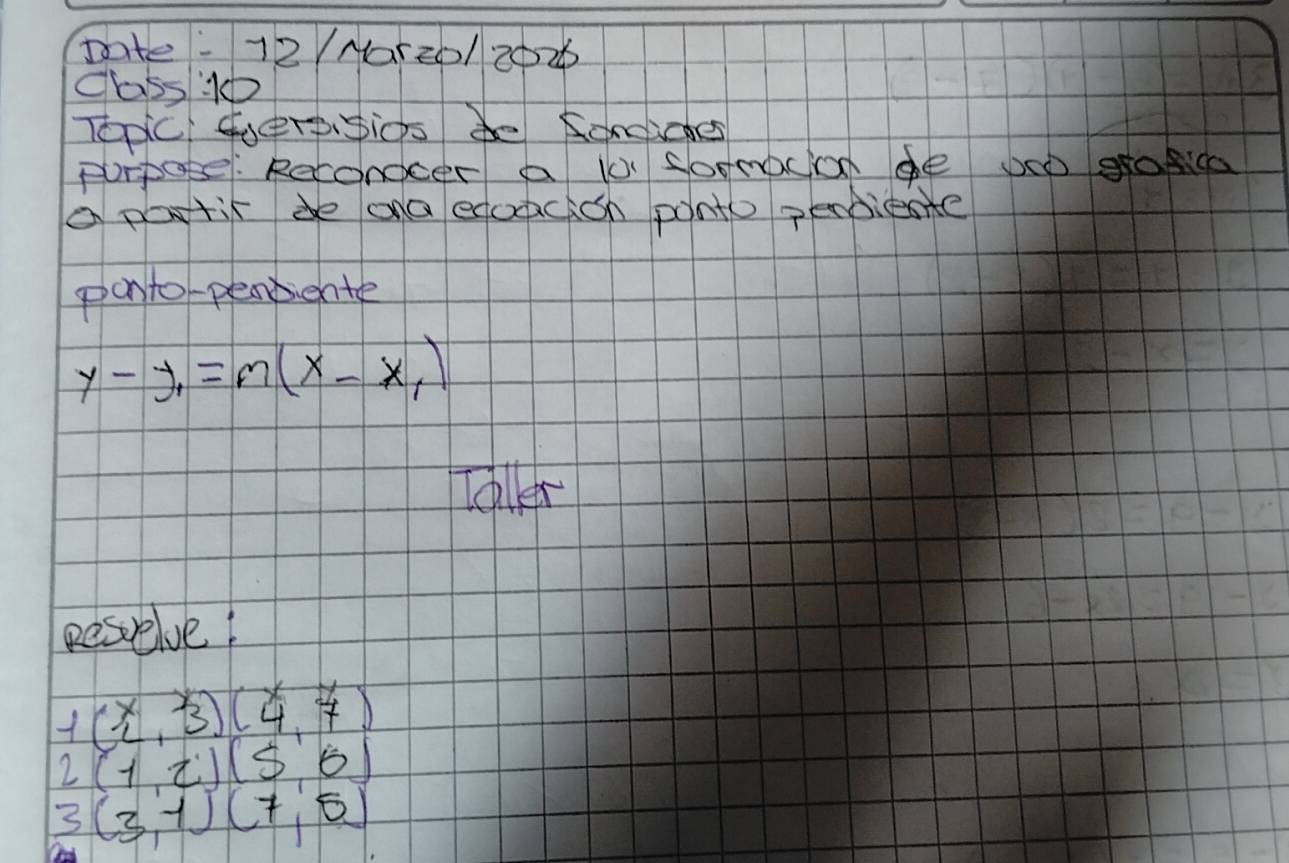 Date: 12/Marzo/2026
Class: 10
Topic: Ejersisios de fonciones
purpose: Reconocer a la formacion de una grafica
a partir de una ecuación punto pendiente
punto-pendiente
y - y₁ = m(x - x₁)
Taller
Resuelve:
x y x y
1 (2, 3) (4, 7)
2 (1, 2) (5, 6)
3 (3, 1) (7, 5)